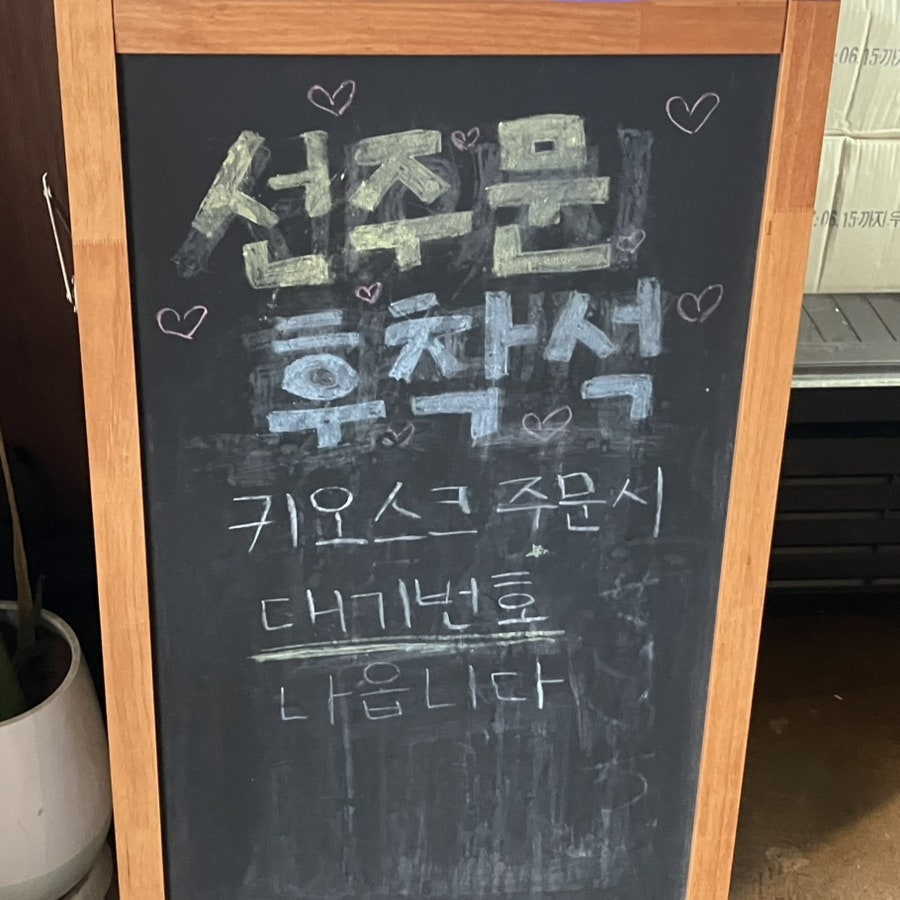 선주문
후착석
키오스크 주문시
대기번호
나옵니다
06.15까지
06.15까지 우